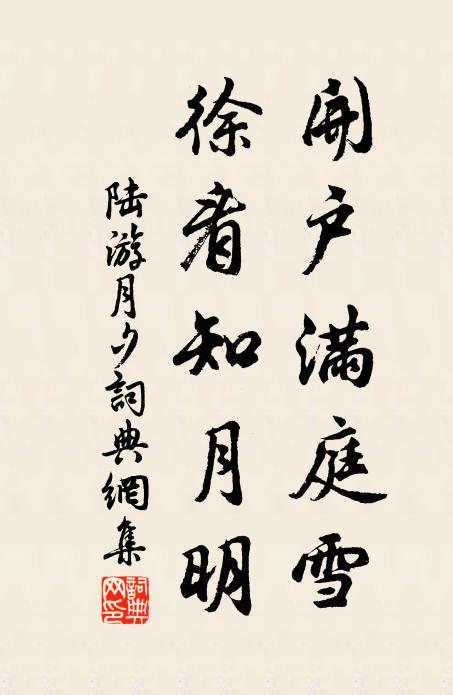 開户滿庭雪
徐看知月明
陆游月夕詞典網集
詞典網印